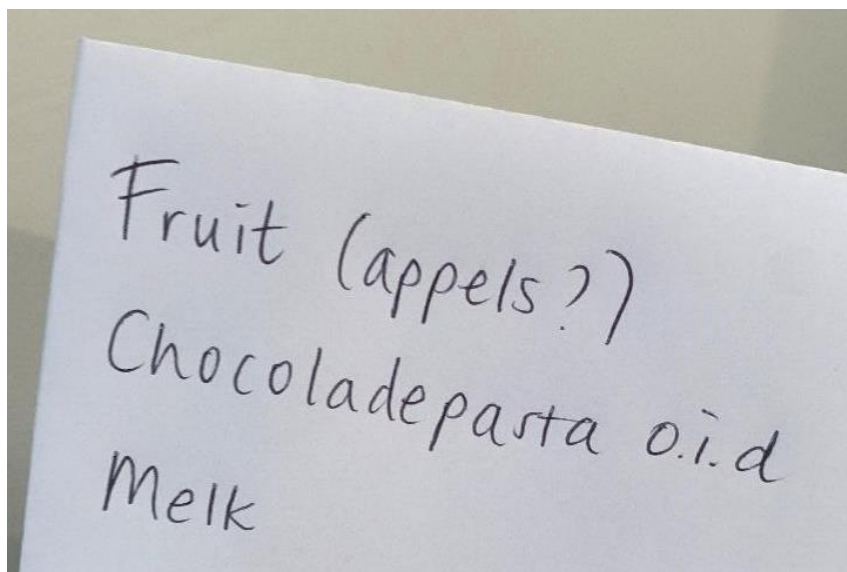 Fruit (appels?)
Chocoladepasta o.i.d
Melk